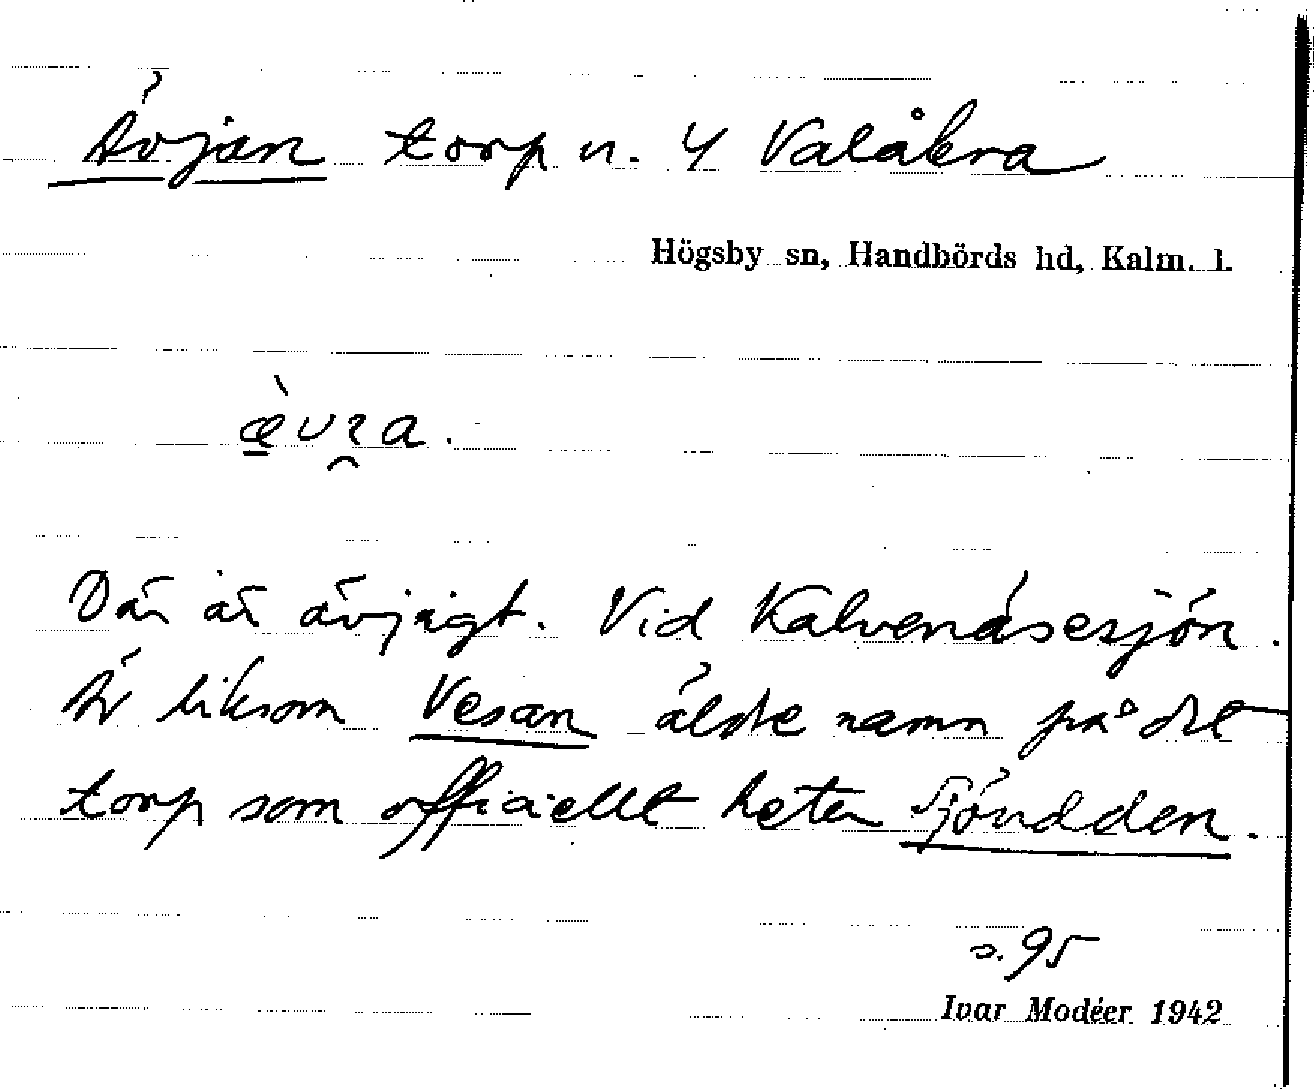 Ävjan torp u. 4 Valåkra
Högsby sn, Handbörds hd, Kalm. l.
Där är ävjigt. Vid Kalvenäsesjön.
Är liksom Vesan äldre namn på det
torp som officiellt heter Sjöudden.
s. 95
Ivar Modéer 1942